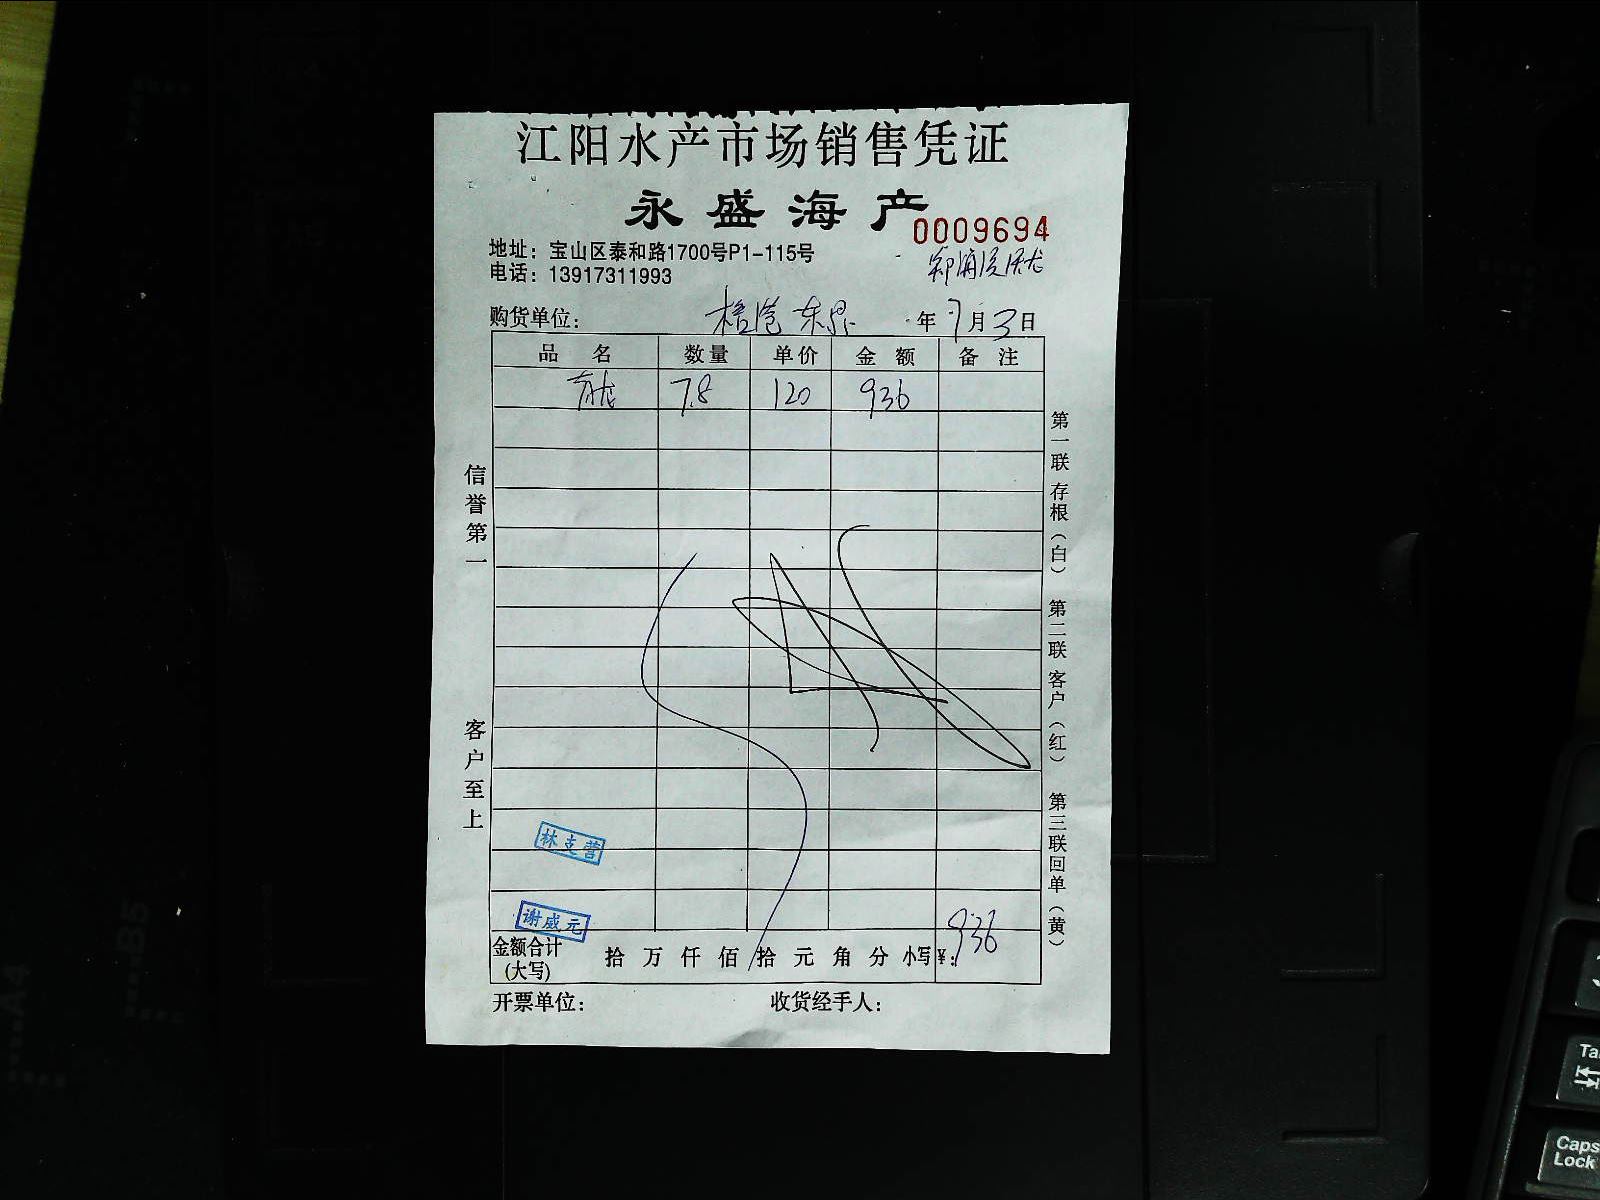 江阳水产市场销售凭证
永盛海产
0009694
地址：宝山区泰和路1700号P1-115号
电话：13917311993
购货单位： 年 7 月 3 日
品名 数量 单价 金额 备注
青龙 7.8 120 936
信誉第一
客户至上
第一联 存根（白） 第二联 客户（红） 第三联 回单（黄）
林支营
谢威元
金额合计 拾 万 仟 佰 拾 元 角 分 小写¥： 936
(大写)
开票单位： 收货经手人：
A4
B5
Caps
Lock